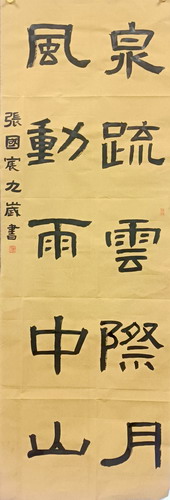 泉疏雲際月
風動雨中山
張國宸九歲書